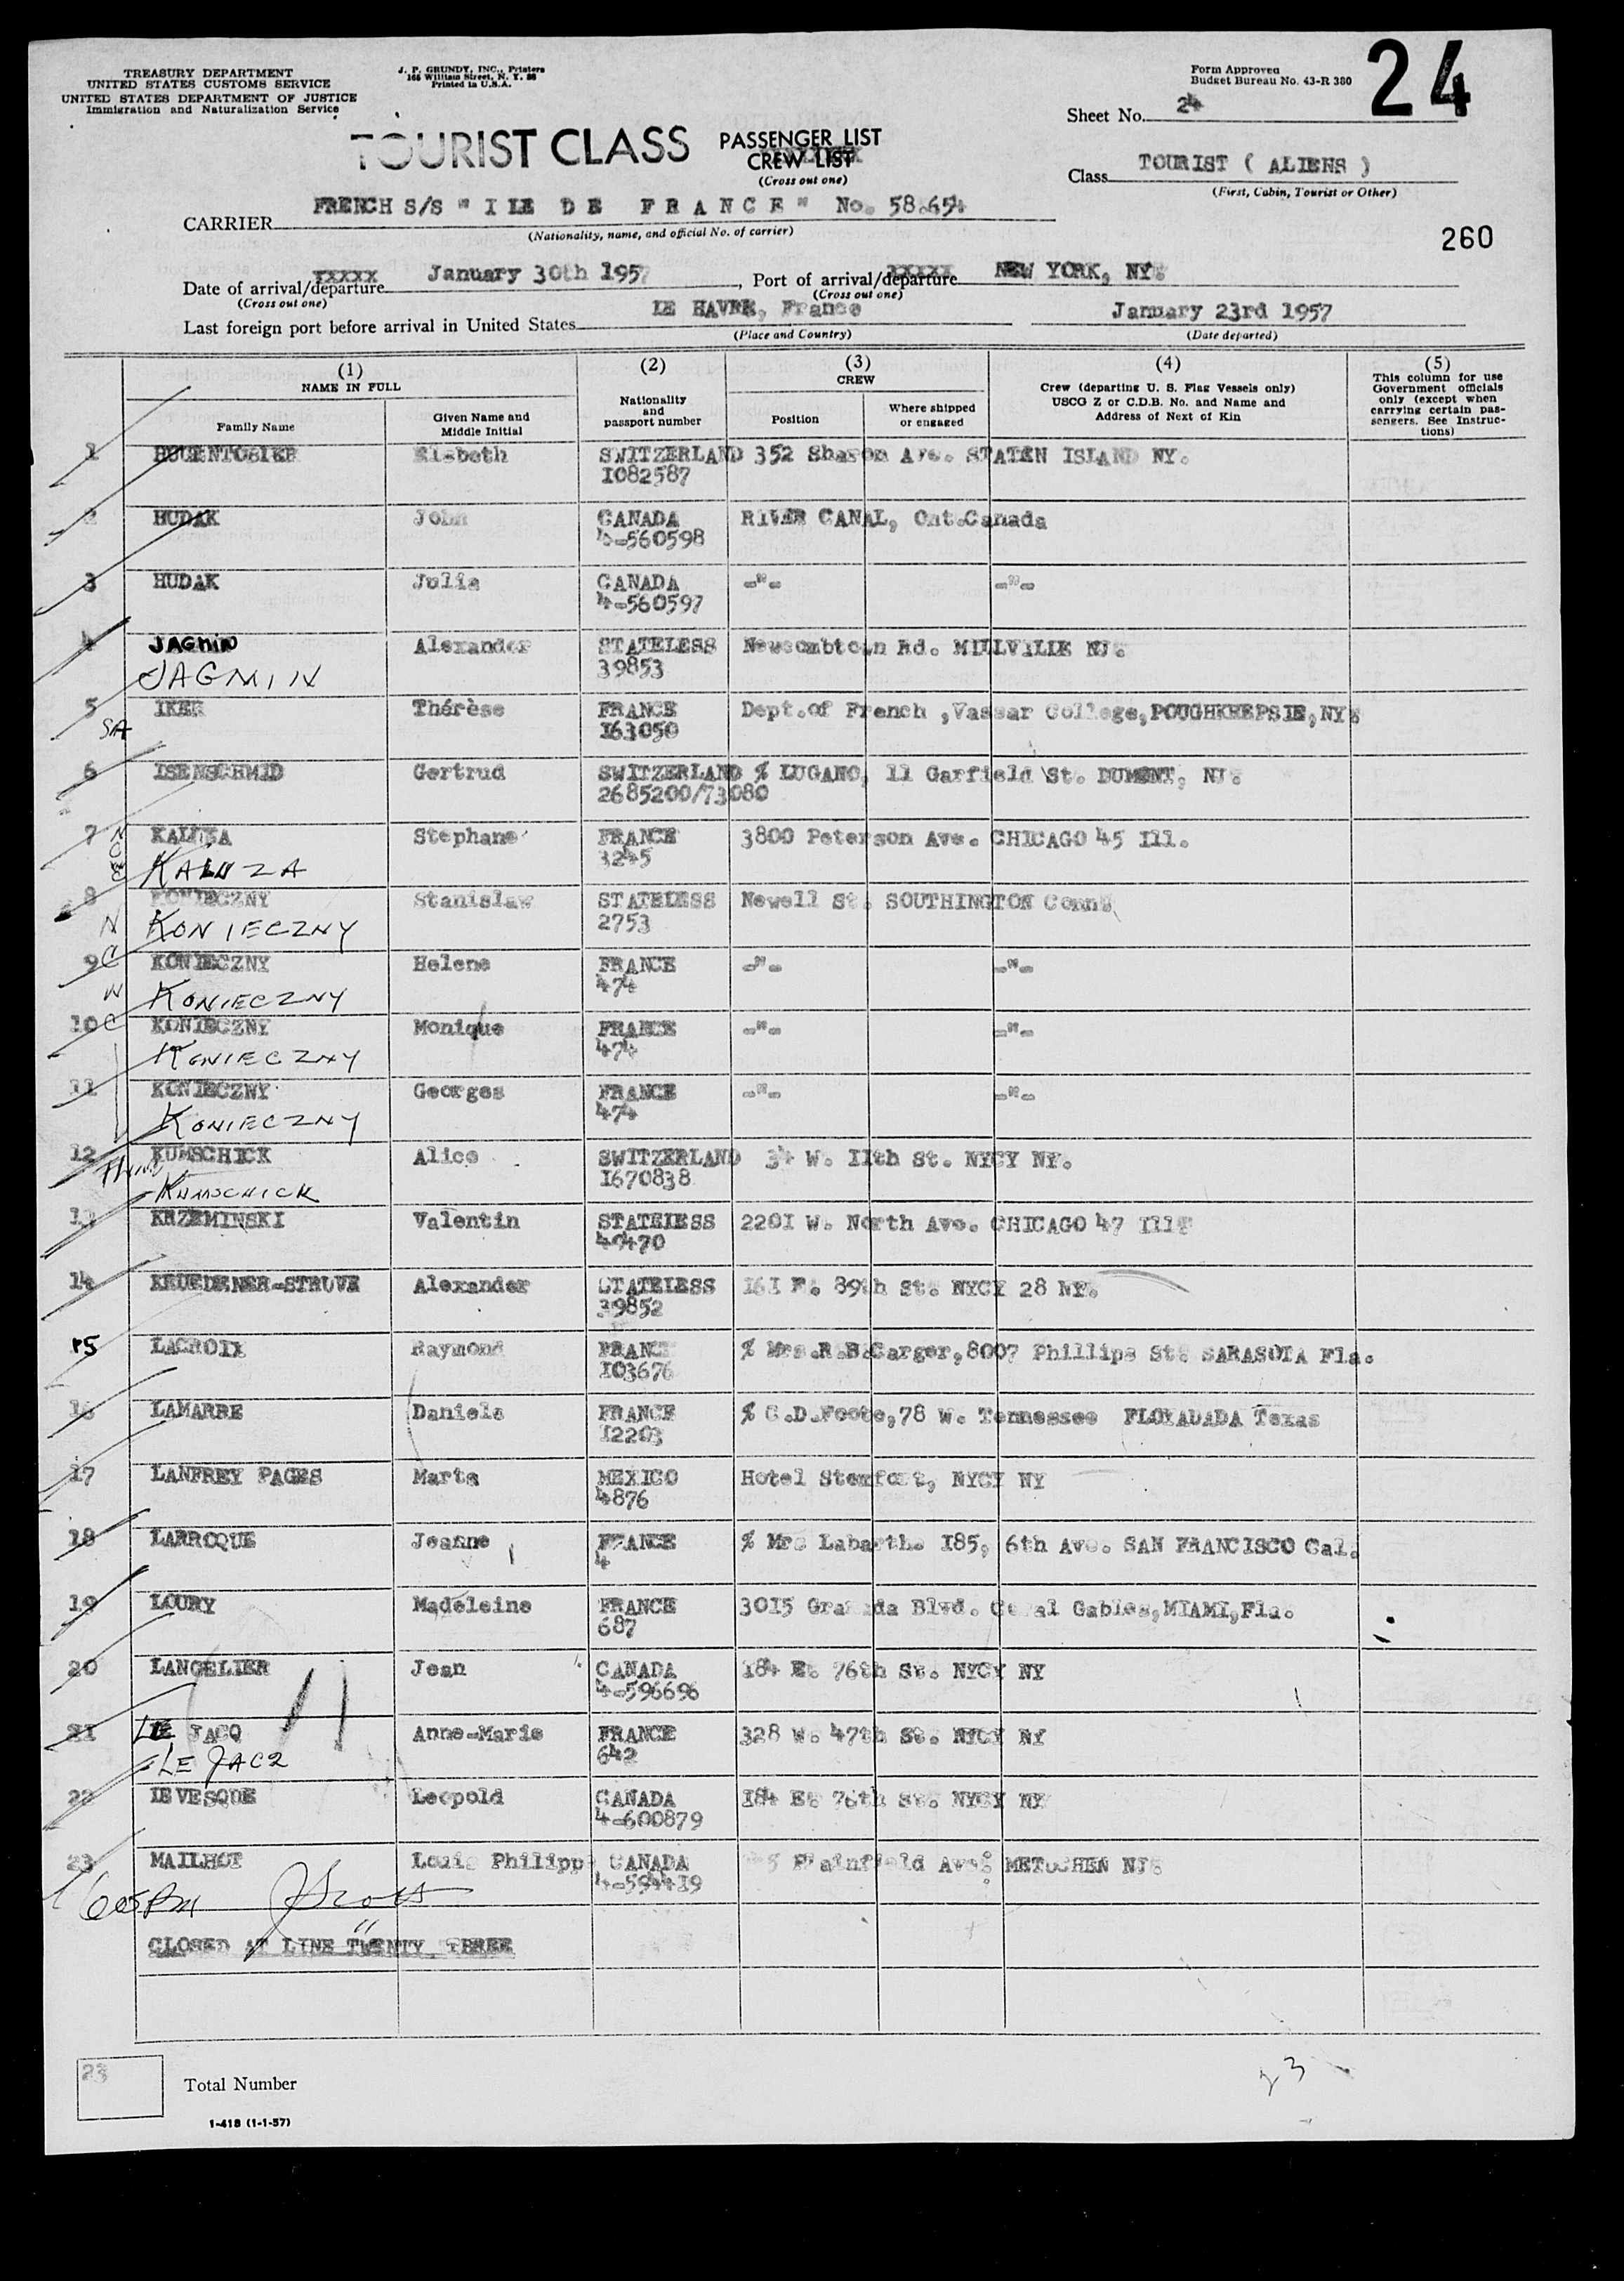 TREASURY DEPARTMENT
UNITED STATES CUSTOMS SERVICE
UNITED STATES DEPARTMENT OF JUSTICE
Immigration and Naturalization Service
J. P. GRUNDY, INC., Printers
Printed in U.S.A.
Form Approved
Budget Bureau No. 43-R 380
24
Sheet No. 24
TOURIST CLASS
PASSENGER LIST
CREW LIST
(Cross out one)
Class TOURIST ( ALIENS )
(First, Cabin, Tourist or Other)
CARRIER FRENCH S/S " I LE D E F R A N C E " No. 58.654
(Nationality, name, and official No. of carrier)
260
Date of arrival/departure January 30th 1957, Port of arrival/departure NEW YORK, NY.
(Cross out one) (Cross out one)
Last foreign port before arrival in United States LE HAVRE, France January 23rd 1957
(Place and Country) (Date departed)
(1) NAME IN FULL
Family Name
Given Name and Middle Initial
(2) Nationality and passport number
(3) CREW
Position
Where shipped or engaged
(4) Crew (departing U. S. Flag Vessels only) USCG Z or C.D.B. No. and Name and Address of Next of Kin
(5) This column for use Government officials only (except when carrying certain passengers. See Instructions)
1 Elsbeth SWITZERLAND 352 Sharon Ave. STATEN ISLAND NY.
1082587
2 HUDAK John CANADA RIVER CANAL, Ont.Canada
4-560598
3 HUDAK Julia CANADA -"- -"-
4-560597
4 JAGMIN Alexander STATELESS Newcombtown Rd. MILLVILLE NJ.
JAGMIN 39853
5 IKER Thérèse FRANCE Dept.of French ,Vassar College,POUGHKEEPSIE,NY.
SA 163050
6 ISENSCHMID Gertrud SWITZERLAND % LUGANO, 11 Garfield St. DUMONT, NJ.
2685200/73080
7 KALUZA Stephane FRANCE 3800 Peterson Ave. CHICAGO 45 Ill.
KALUZA 3245
8 KONIECZNY Stanislaw STATELESS Newell St. SOUTHINGTON Conn.
KONIECZNY 2753
9 KONIECZNY Helene FRANCE -"- -"-
KONIECZNY 474
10 KONIECZNY Monique FRANCE -"- -"-
KONIECZNY 474
11 KONIECZNY Georges FRANCE -"- -"-
KONIECZNY 474
12 KUMSCHICK Alice SWITZERLAND 34 W. 11th St. NYCY NY.
KUMSCHICK 1670838
13 KRZEMINSKI Valentin STATELESS 2201 W. North Ave. CHICAGO 47 Ill.
14 KRUEDENER-STRUVE Alexander STATELESS 161 E. 89th St. NYCY 28 NY.
39852
15 LACROIX Raymond FRANCE % Mrs.R.B.Carger,8007 Phillips St. SARASOTA Fla.
103676
16 LAMARRE Daniele FRANCE % C.D.Foote,78 W. Tennessee FLOYADADA Texas
12203
17 LANFREY PAGES Marta MEXICO Hotel NYCY NY
4876
18 LARROQUE Jeanne FRANCE % Mrs Labarthe 185, 6th Ave. SAN FRANCISCO Cal.
4
19 LOURY Madeleine FRANCE 3015 Granada Blvd. Coral Gables,MIAMI,Fla.
687
20 LANGELIER Jean CANADA 184 E. 76th St. NYCY NY
4-596696
21 LE JACQ Anne-Marie FRANCE 328 W. 47th St. NYCY NY
LE JACQ 642
22 LEVESQUE Leopold CANADA 184 E. 76th St. NYCY NY
4-600879
23 MAILHOT Louis Philippe CANADA Plainfield Ave. METUCHEN NJ.
4-594419
CLOSED AT LINE TWENTY THREE
23 Total Number
23
I-418 (1-1-57)